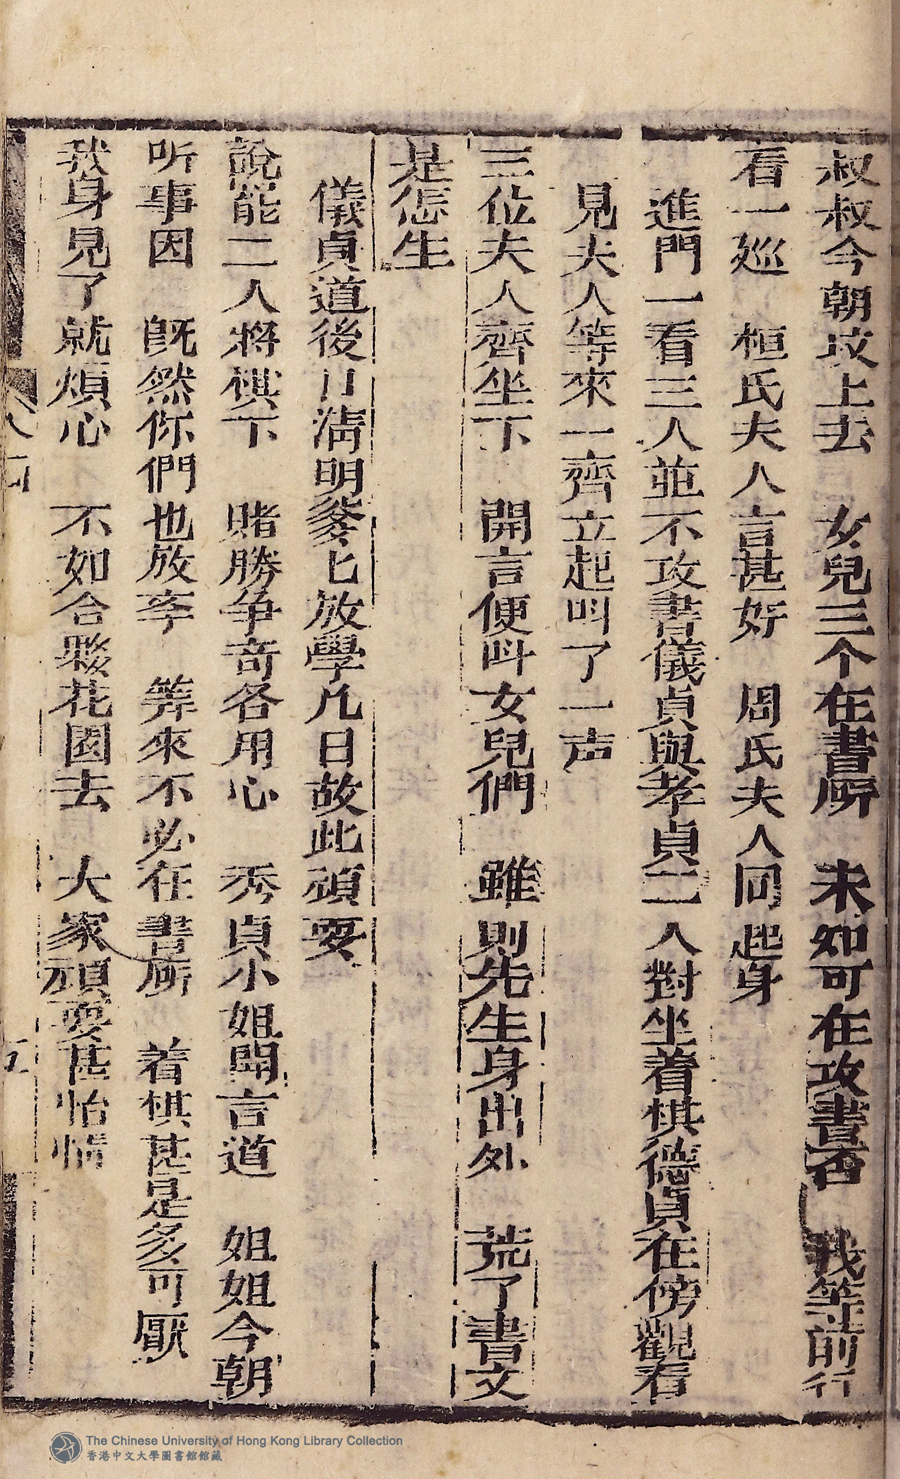 叔叔今朝坟上去　女兒三个在書所　未知可在攻書否　我等前行
看一廵　桓氏夫人言甚好　周氏夫人同起身
進門一看三人並不攻書儀貞與孝貞二人對坐着棋德貞在傍觀看
見夫人等來一齊立起呌了一声
三位夫人齊坐下　開言便呌女兒們　雖則先生身出外　荒了書文
是怎生
儀貞道後日清明爹匕放學几日故此頑耍
說罷二人將棋下　賭勝争奇各用心　秀貞小姐聞言道　姐姐今朝
听事因　旣然你們也放斈　筭來不必在書所　着棋甚是多可厭
我身見了就煩心　不如合夥花園去　大家頑耍甚怡情
八
五
The Chinese University of Hong Kong Library Collection
香港中文大學圖書館館藏